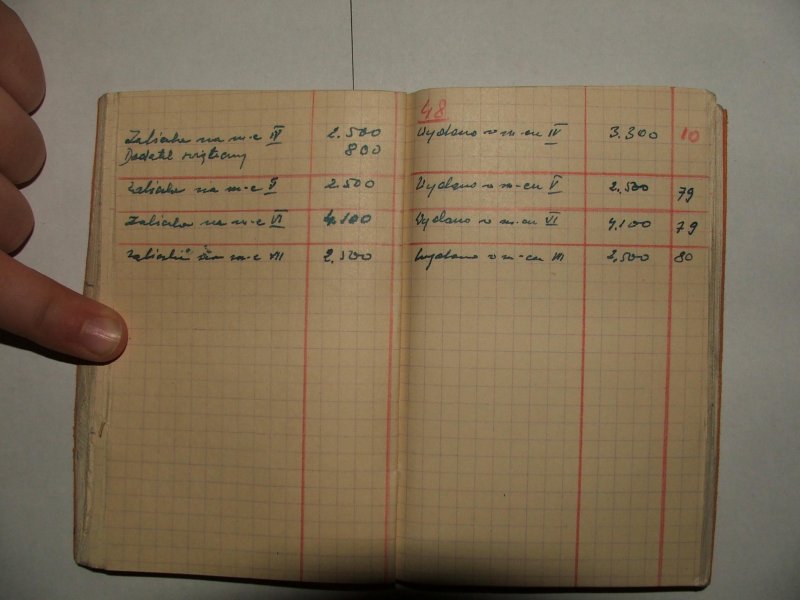 48
Zaliczka na m-c IV 2.500
Dodatek świąteczny 800
Zaliczka na m-c V 2.500
Zaliczka na m-c VI 4.100
Zaliczka na m-c VII 2.500
Wydano w m-cu IV 3.300 10
Wydano w m-cu V 2.500 79
Wydano w m-cu VI 4.100 79
Wydano w m-cu VII 2.500 80